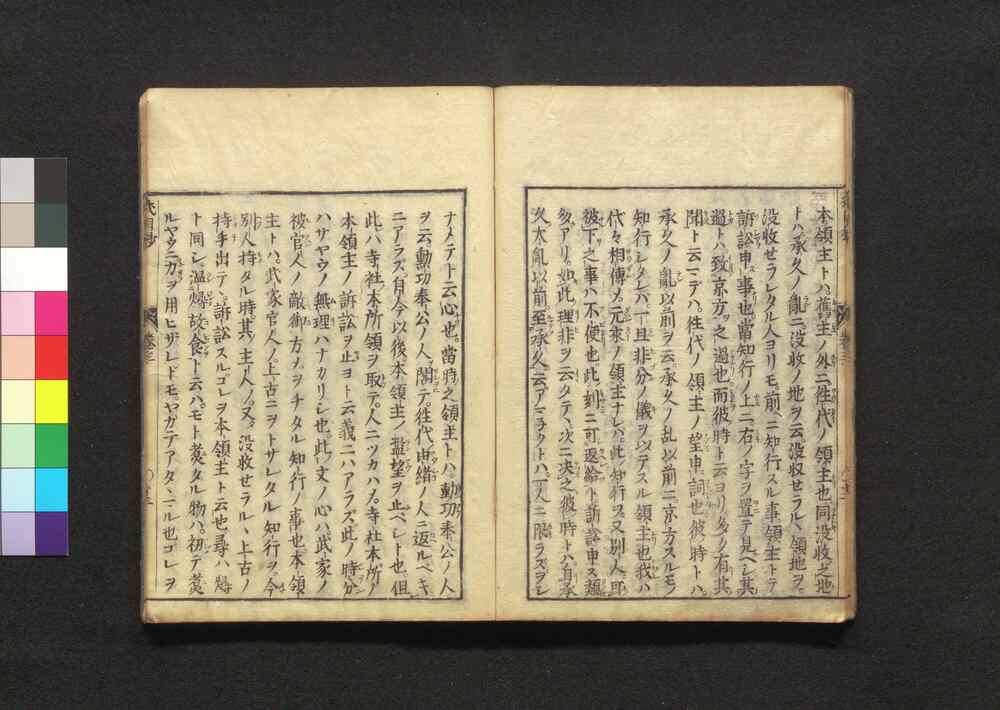 本領主トハ舊主ノ外ニ往代ノ領主也同没收之地
トハ承久ノ亂ニ没收ノ地ヲ云没收セラルヽ領地ヲ
没收セラレタル人ヨリモ前ニ知行スル事領主トテ
訴訟申ス事也當知行ノ上ニ右ノ字ヲ置テ見ベシ其
過トハ致京方之過也而彼時ト云ヨリ多ノ有其
聞ト云マデハ往代ノ領主ノ望申詞也彼時トハ
承久ノ亂以前ヲ云承久ノ乱以前ニ京方スルモノ
知行シタレバ一旦非分ノ儀ヲ以テスル領主也我ハ
代々相傳ノ元來ノ領主ナレバ此知行ヲ又別人ニ
彼下之事ハ不便也此刻ニ可返給ト訴訟申ス類
多アリ如此理非ヲ云タテ次ニ決之彼時トハ自承
久大亂以前至承久云アマ子クトハ一人ニ限ラズヲシ
ナメテト云心也當時之領主トハ勳功奉公ノ人
ヲ云勳功奉公ノ人ヲ閣テ往代由緒ノ人ニ返ルベキ
ニアラズ自今以後本領主ノ濫望ヲ止ベレト也但
此ハ寺社本所領ヲ取テ人ニツカハス寺社本所ノ
本領主ノ訴訟ヲ止ヨト云義ニハアラズ此ノ時分
ハサヤウノ無理ハナカリシ也此ノ文ノ心ハ武家ノ
被官人ノ敵御方ノヲチタル知行ノ事也本領
主トハ武家官人ノ上古ニヲトサレタル知行ヲ今
別人持タル時其ノ主ト人ノ又没收セラルヽ上古ノ
持手出テ訴訟スルコレヲ本領主ト云也尋ハ燖
ト同シ温燖故食ト云ハモト煑タル物ハ初テ煑
ルヤウニ力ヲ用ヒザレドモヤガテアタヽニル也コレヲ
卷三